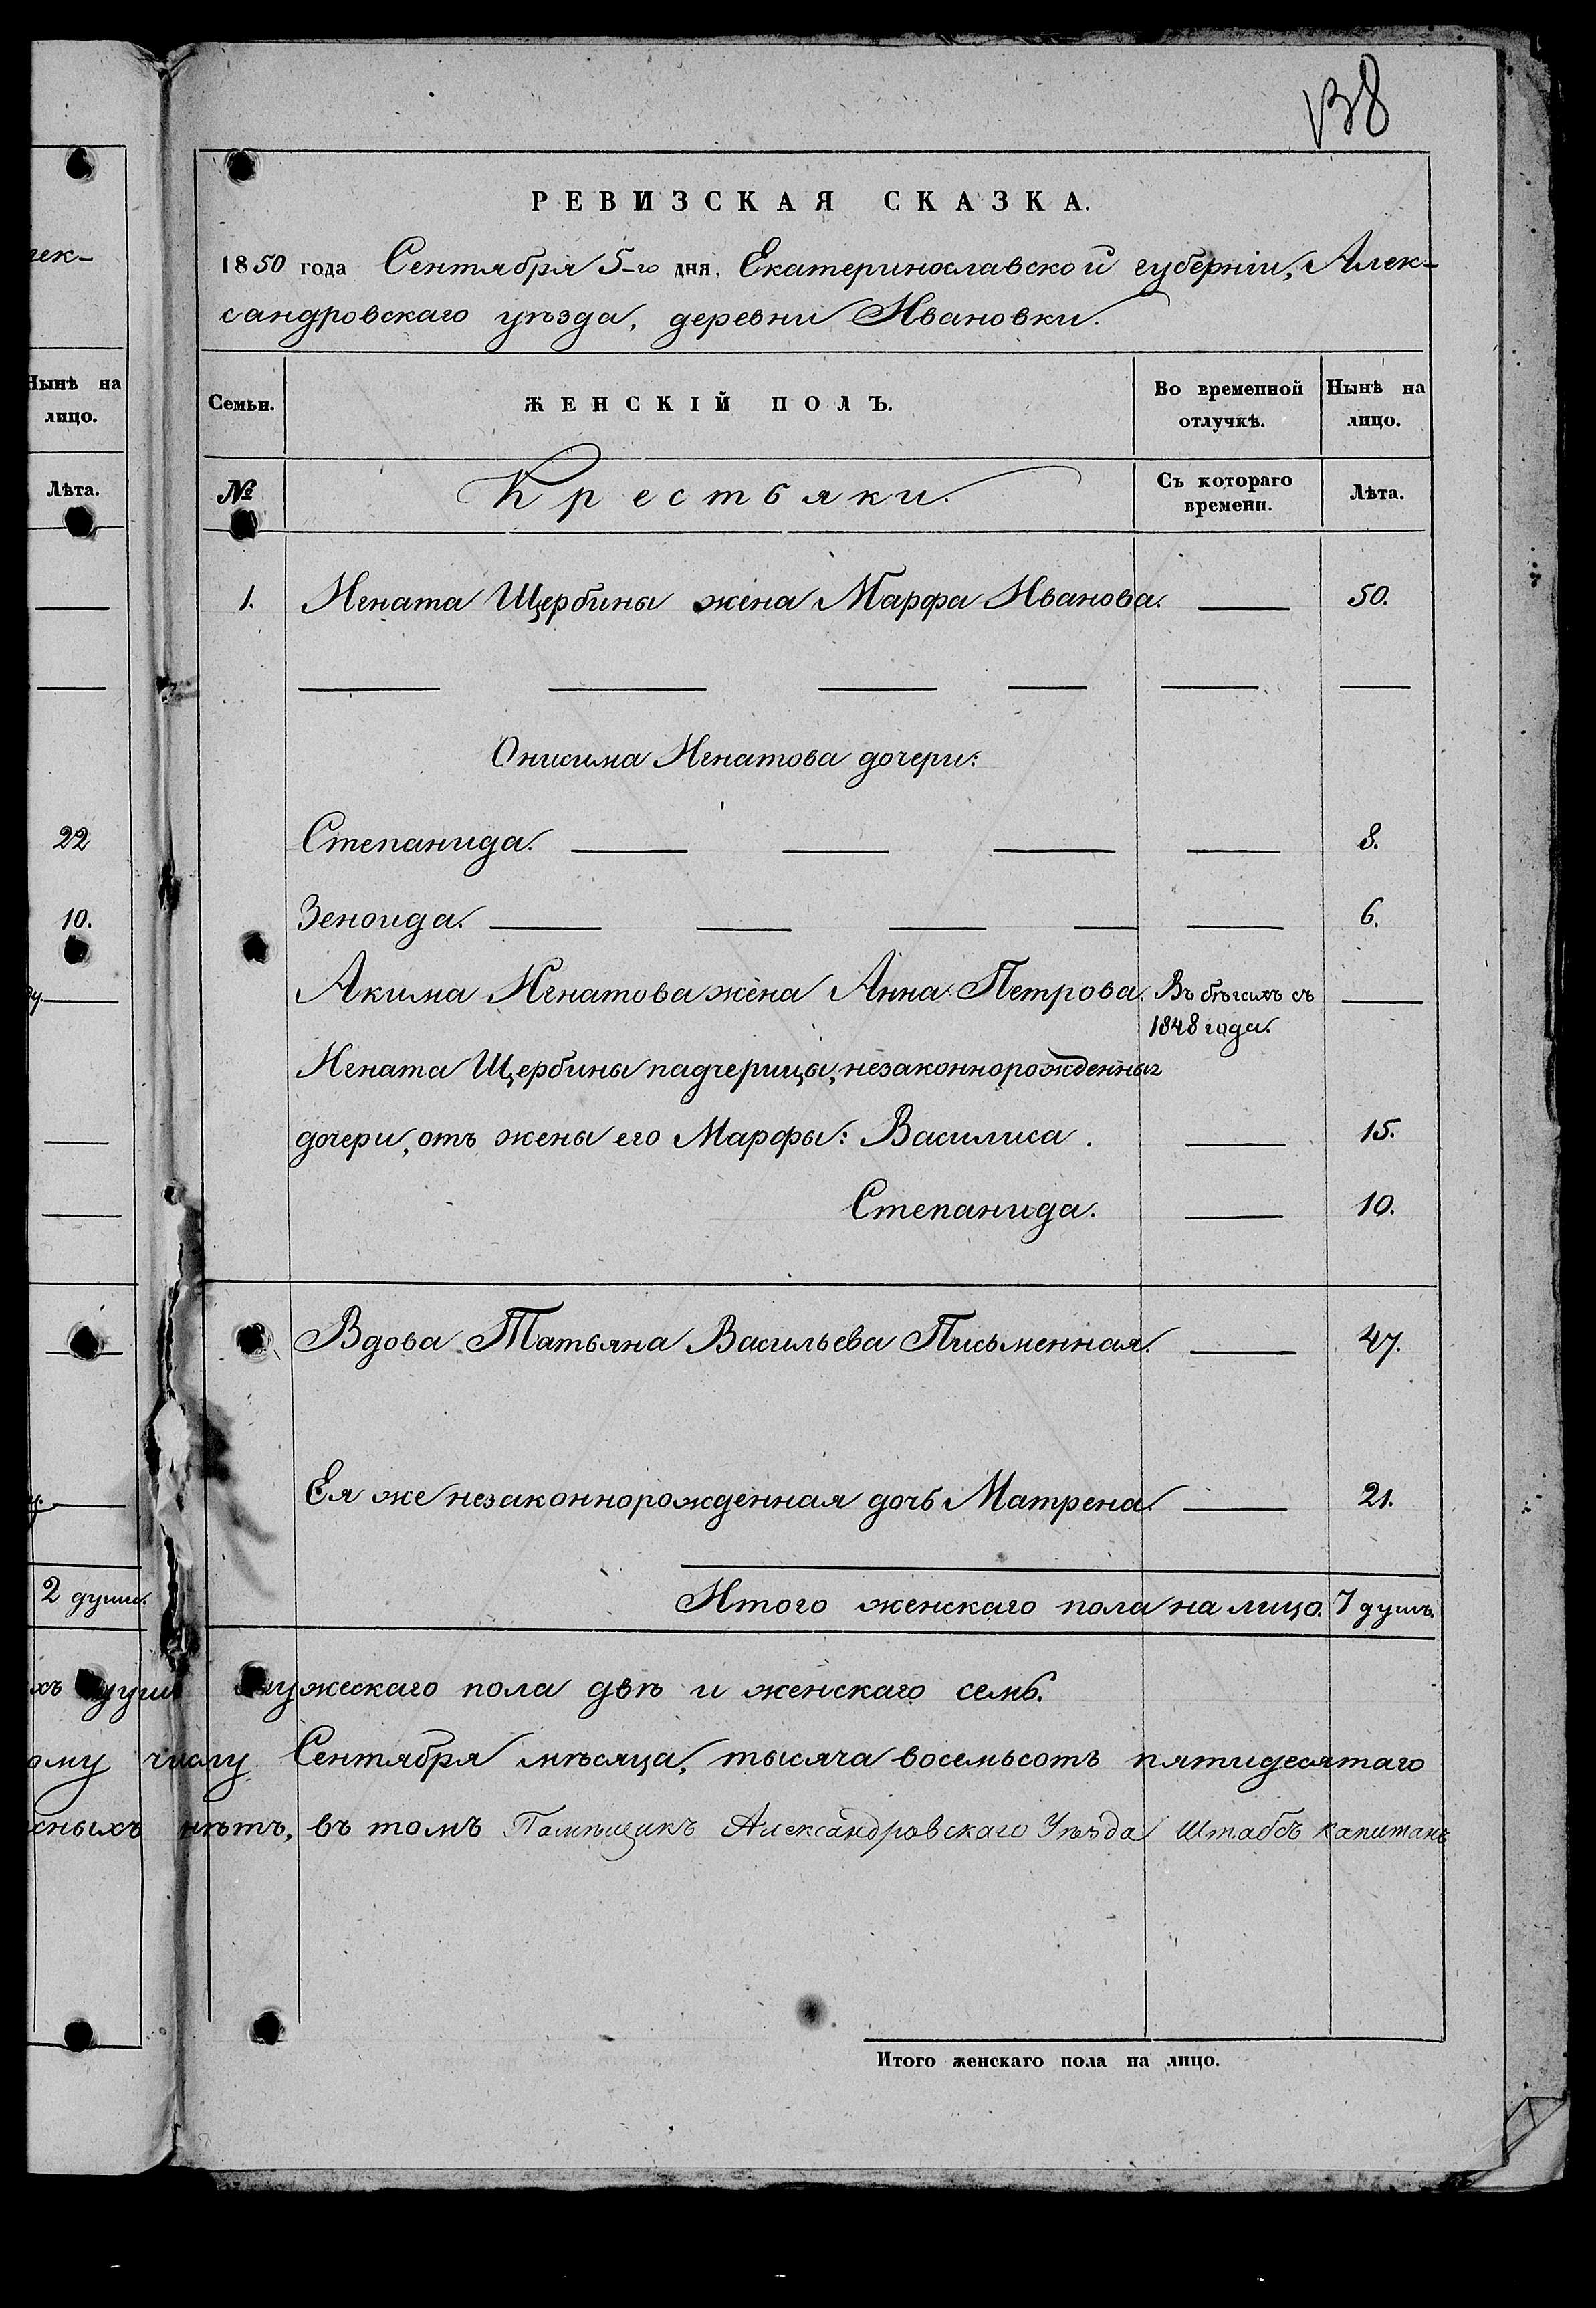 138
РЕВИЗСКАЯ СКАЗКА.
1850 года Сентября 5-го дня, Екатеринославской губерніи, Алек-
сандровскаго уѣзда, деревни Ивановки.
Семьи. ЖЕНСКІЙ ПОЛЪ. Во временной отлучкѣ. Нынѣ на лицо.
№ Крестьяки. Съ котораго времени. Лѣта.
1. Игната Щербины жена Марфа Иванова. — 50.
Онисима Игнатова дочери:
Степанида. — 8.
Зеноида. — 6.
Акима Игнатова жена Анна Петрова. Въ бѣгахъ съ —
1848 года.
Игната Щербины падчерицы, незаконнорожденныя
дочери, отъ жены его Марфы: Василиса. — 15.
Степанида. — 10.
Вдова Татьяна Васильева Письменная. — 47.
Ея же незаконнорожденная дочь Матрена. — 21.
Итого женскаго пола на лицо. 7 душъ.
мужескаго пола двѣ и женскаго семь.
числу Сентября мѣсяца, тысяча восемьсотъ пятидесятаго
нѣтъ, въ томъ Помѣщикъ Александровскаго Уѣзда Штабсъ капитанъ
Итого женскаго пола на лицо.
лек-
Нынѣ на
лицо.
Лѣта.
22
10.
2 души.
хъ душъ
ому
сныхъ